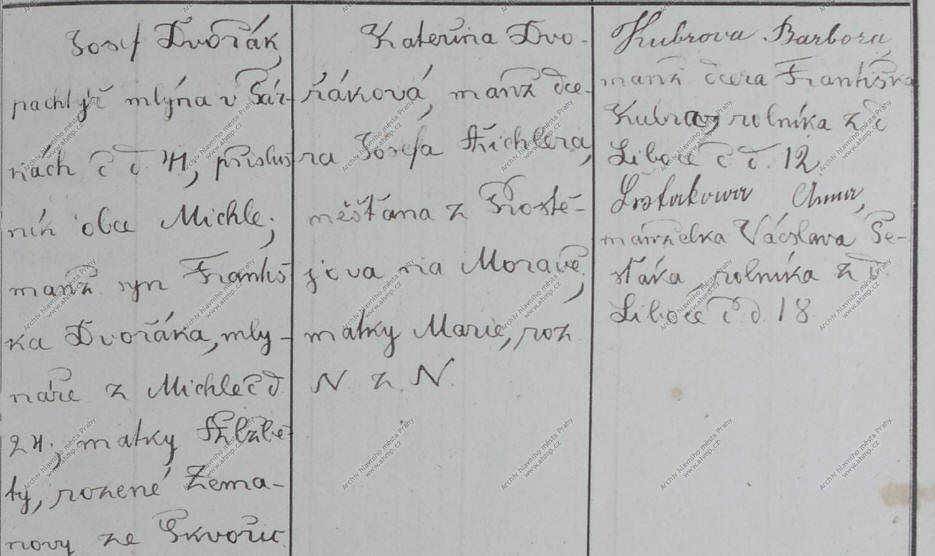 Josef Dvořák,
pachtýř mlýna v Šár-
kách č d 41, přísluš
ník obce Michle;
manž syn Františ
ka Dvořáka, mly-
náře z Michle č d
24; matky Alžbě-
ty, rozené Zema-
novy ze Škvořic
Kateřina Dvo-
řáková, manž dce-
ra Josefa Aichlera,
měšťana z Prostě-
jova na Moravě,
matky Marie, roz
N z N.
Kubrova Barbora
manž dcera Františka
Kubra, rolníka z d
Liboce č d. 12,
Anna,
manželka Václava Še-
stáka, rolníka z d
Liboce č d. 18
Archiv hlavního města Prahy
www.ahmp.cz